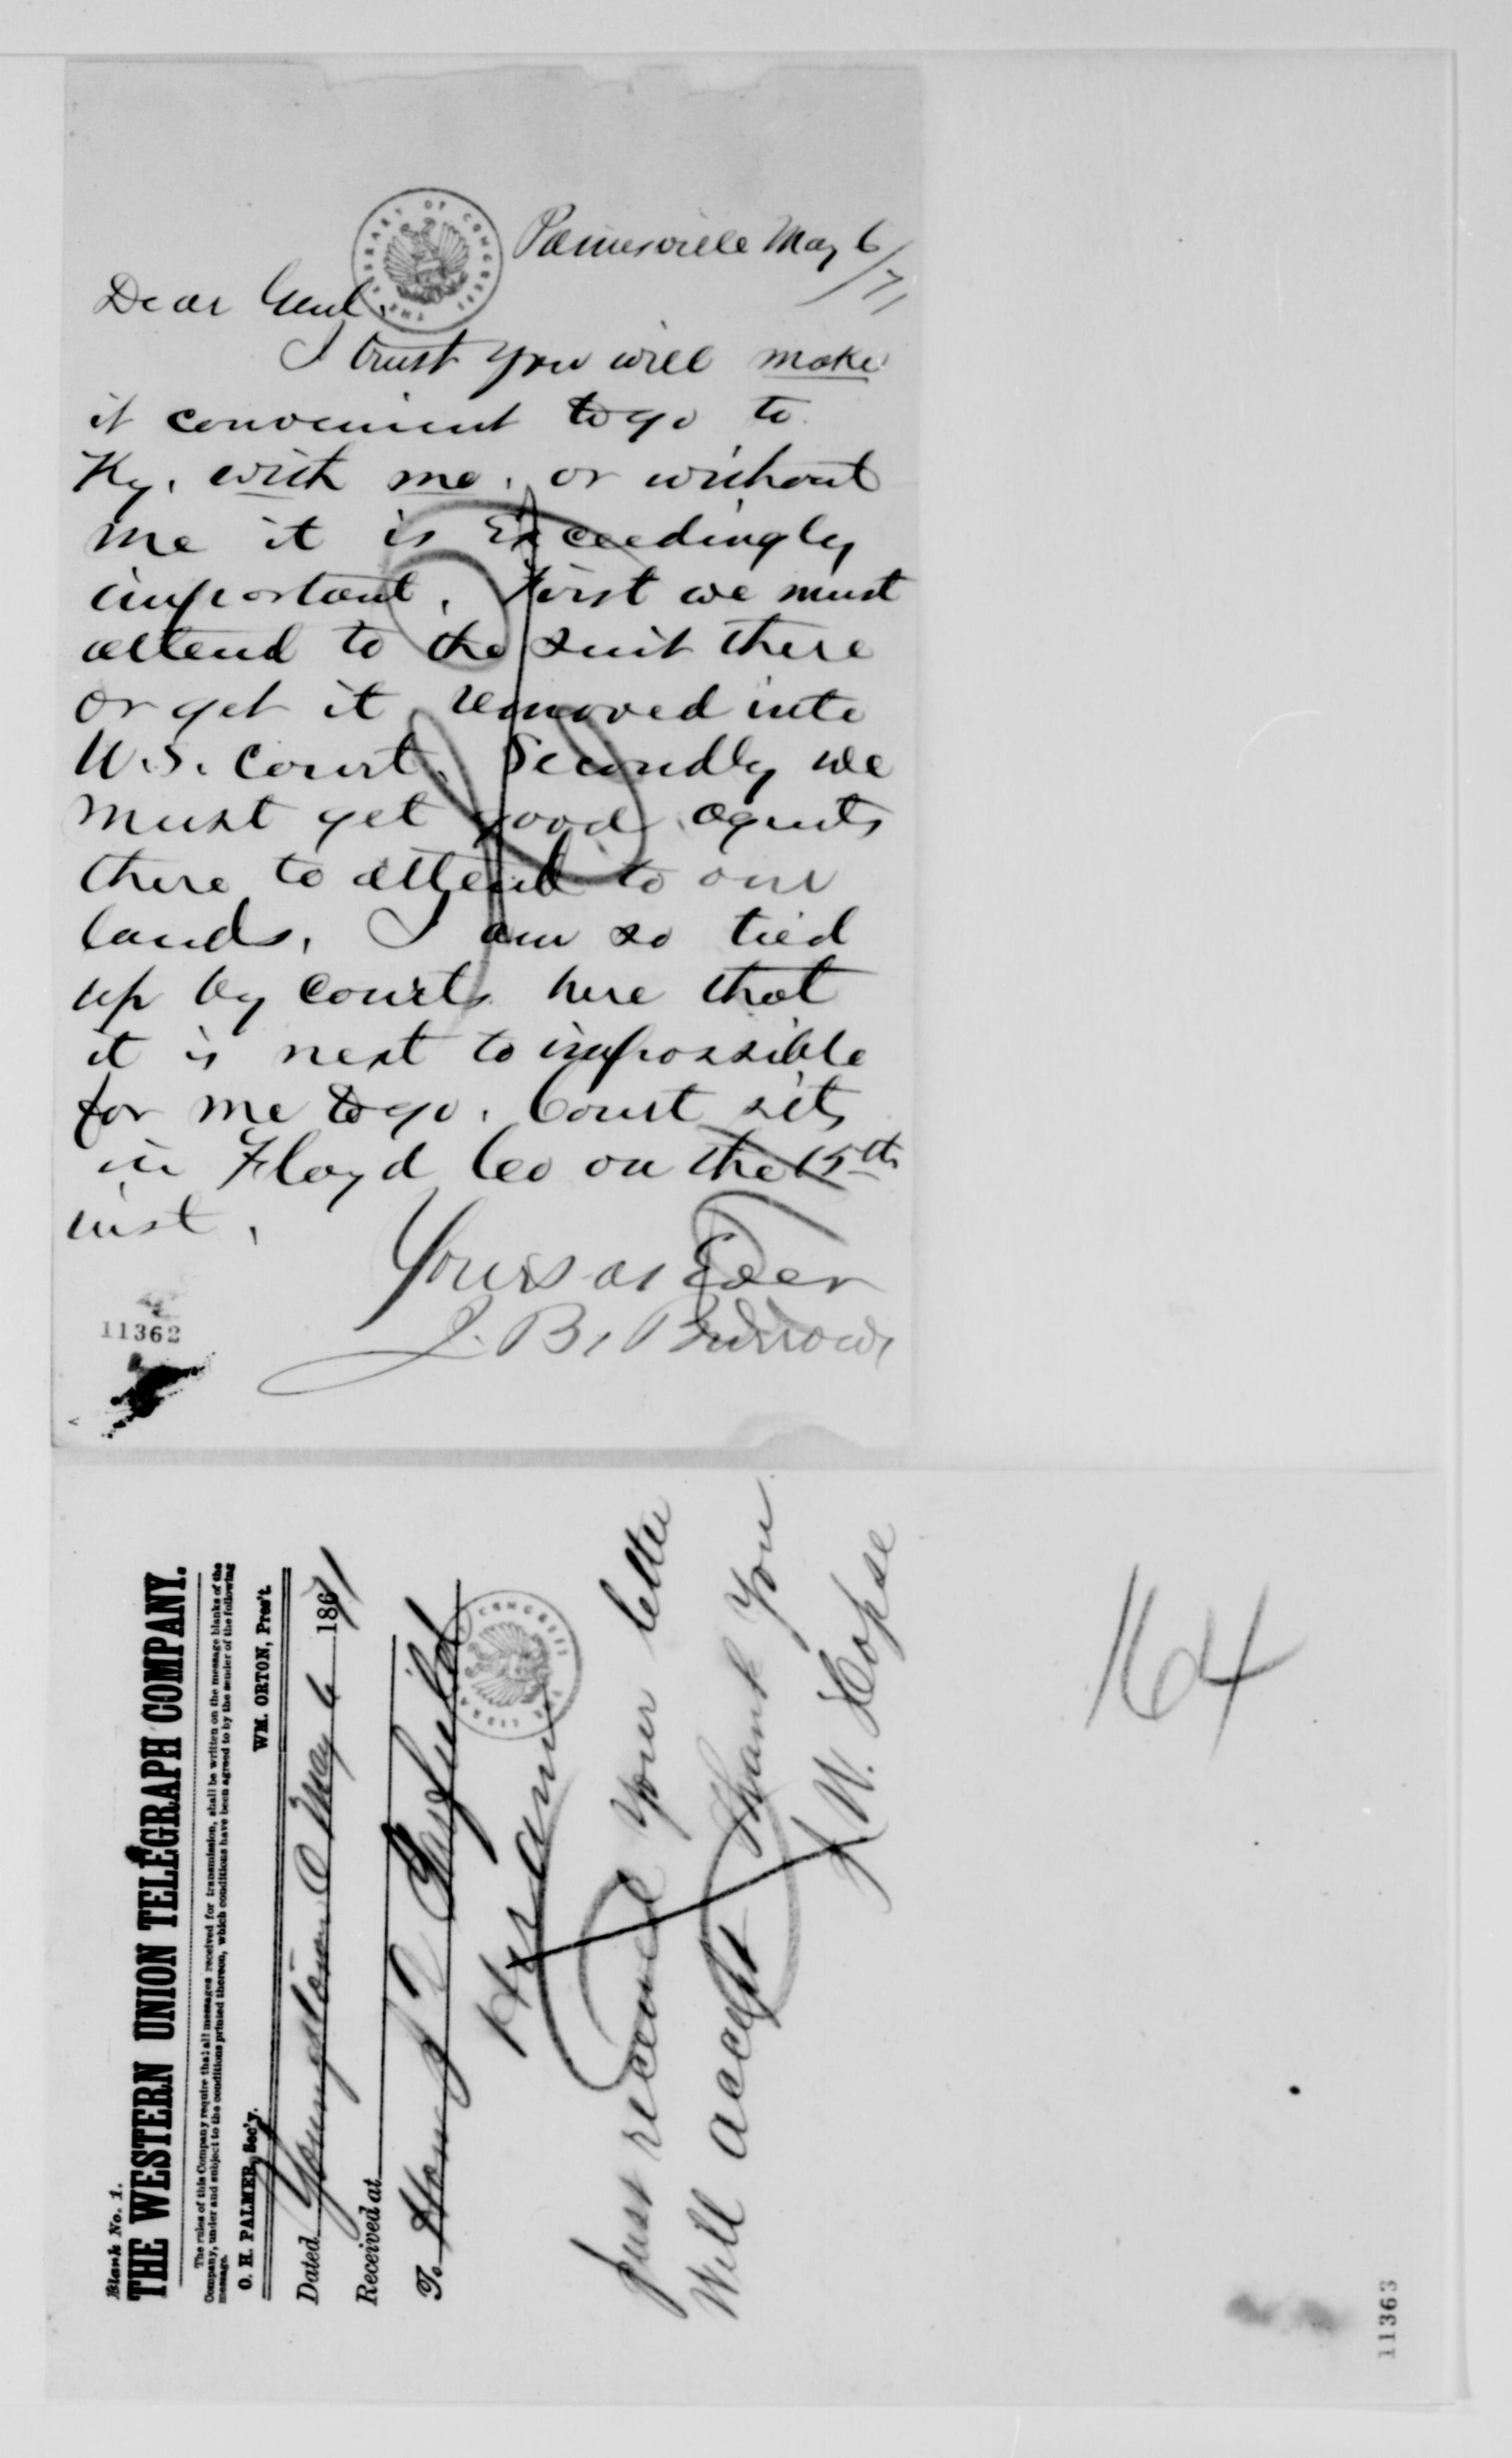 Painesville May 6/71
Dear Genl.
I trust you will make
it convenient to go to
Ky. with me, or without
me it is Exceedingly
important. First we must
attend to the suit there
or get it removed into
U.S. Court. Secondly we
must get good agents
there to attend to our
lands. I am so tied
up by courts here that
it is next to impossible
for me to go. Court sits
in Floyd Co on the 15th
inst.
Yours as Ever
J. B. Burrows
THE LIBRARY OF CONGRESS
11362
Blank No. 1.
THE WESTERN UNION TELEGRAPH COMPANY.
The rules of this Company require that all messages received for transmission, shall be written on the message blanks of the
Company, under and subject to the conditions printed thereon, which conditions have been agreed to by the sender of the following
message.
O. H. PALMER, Sec'y. WM. ORTON, Pres't.
Dated Youngstown O May 6 1871
Received at
To Hon J A Garfield
Hiram
THE LIBRARY OF CONGRESS
Just received your letter
Will accept Thank you
W. Hopse
164
11363